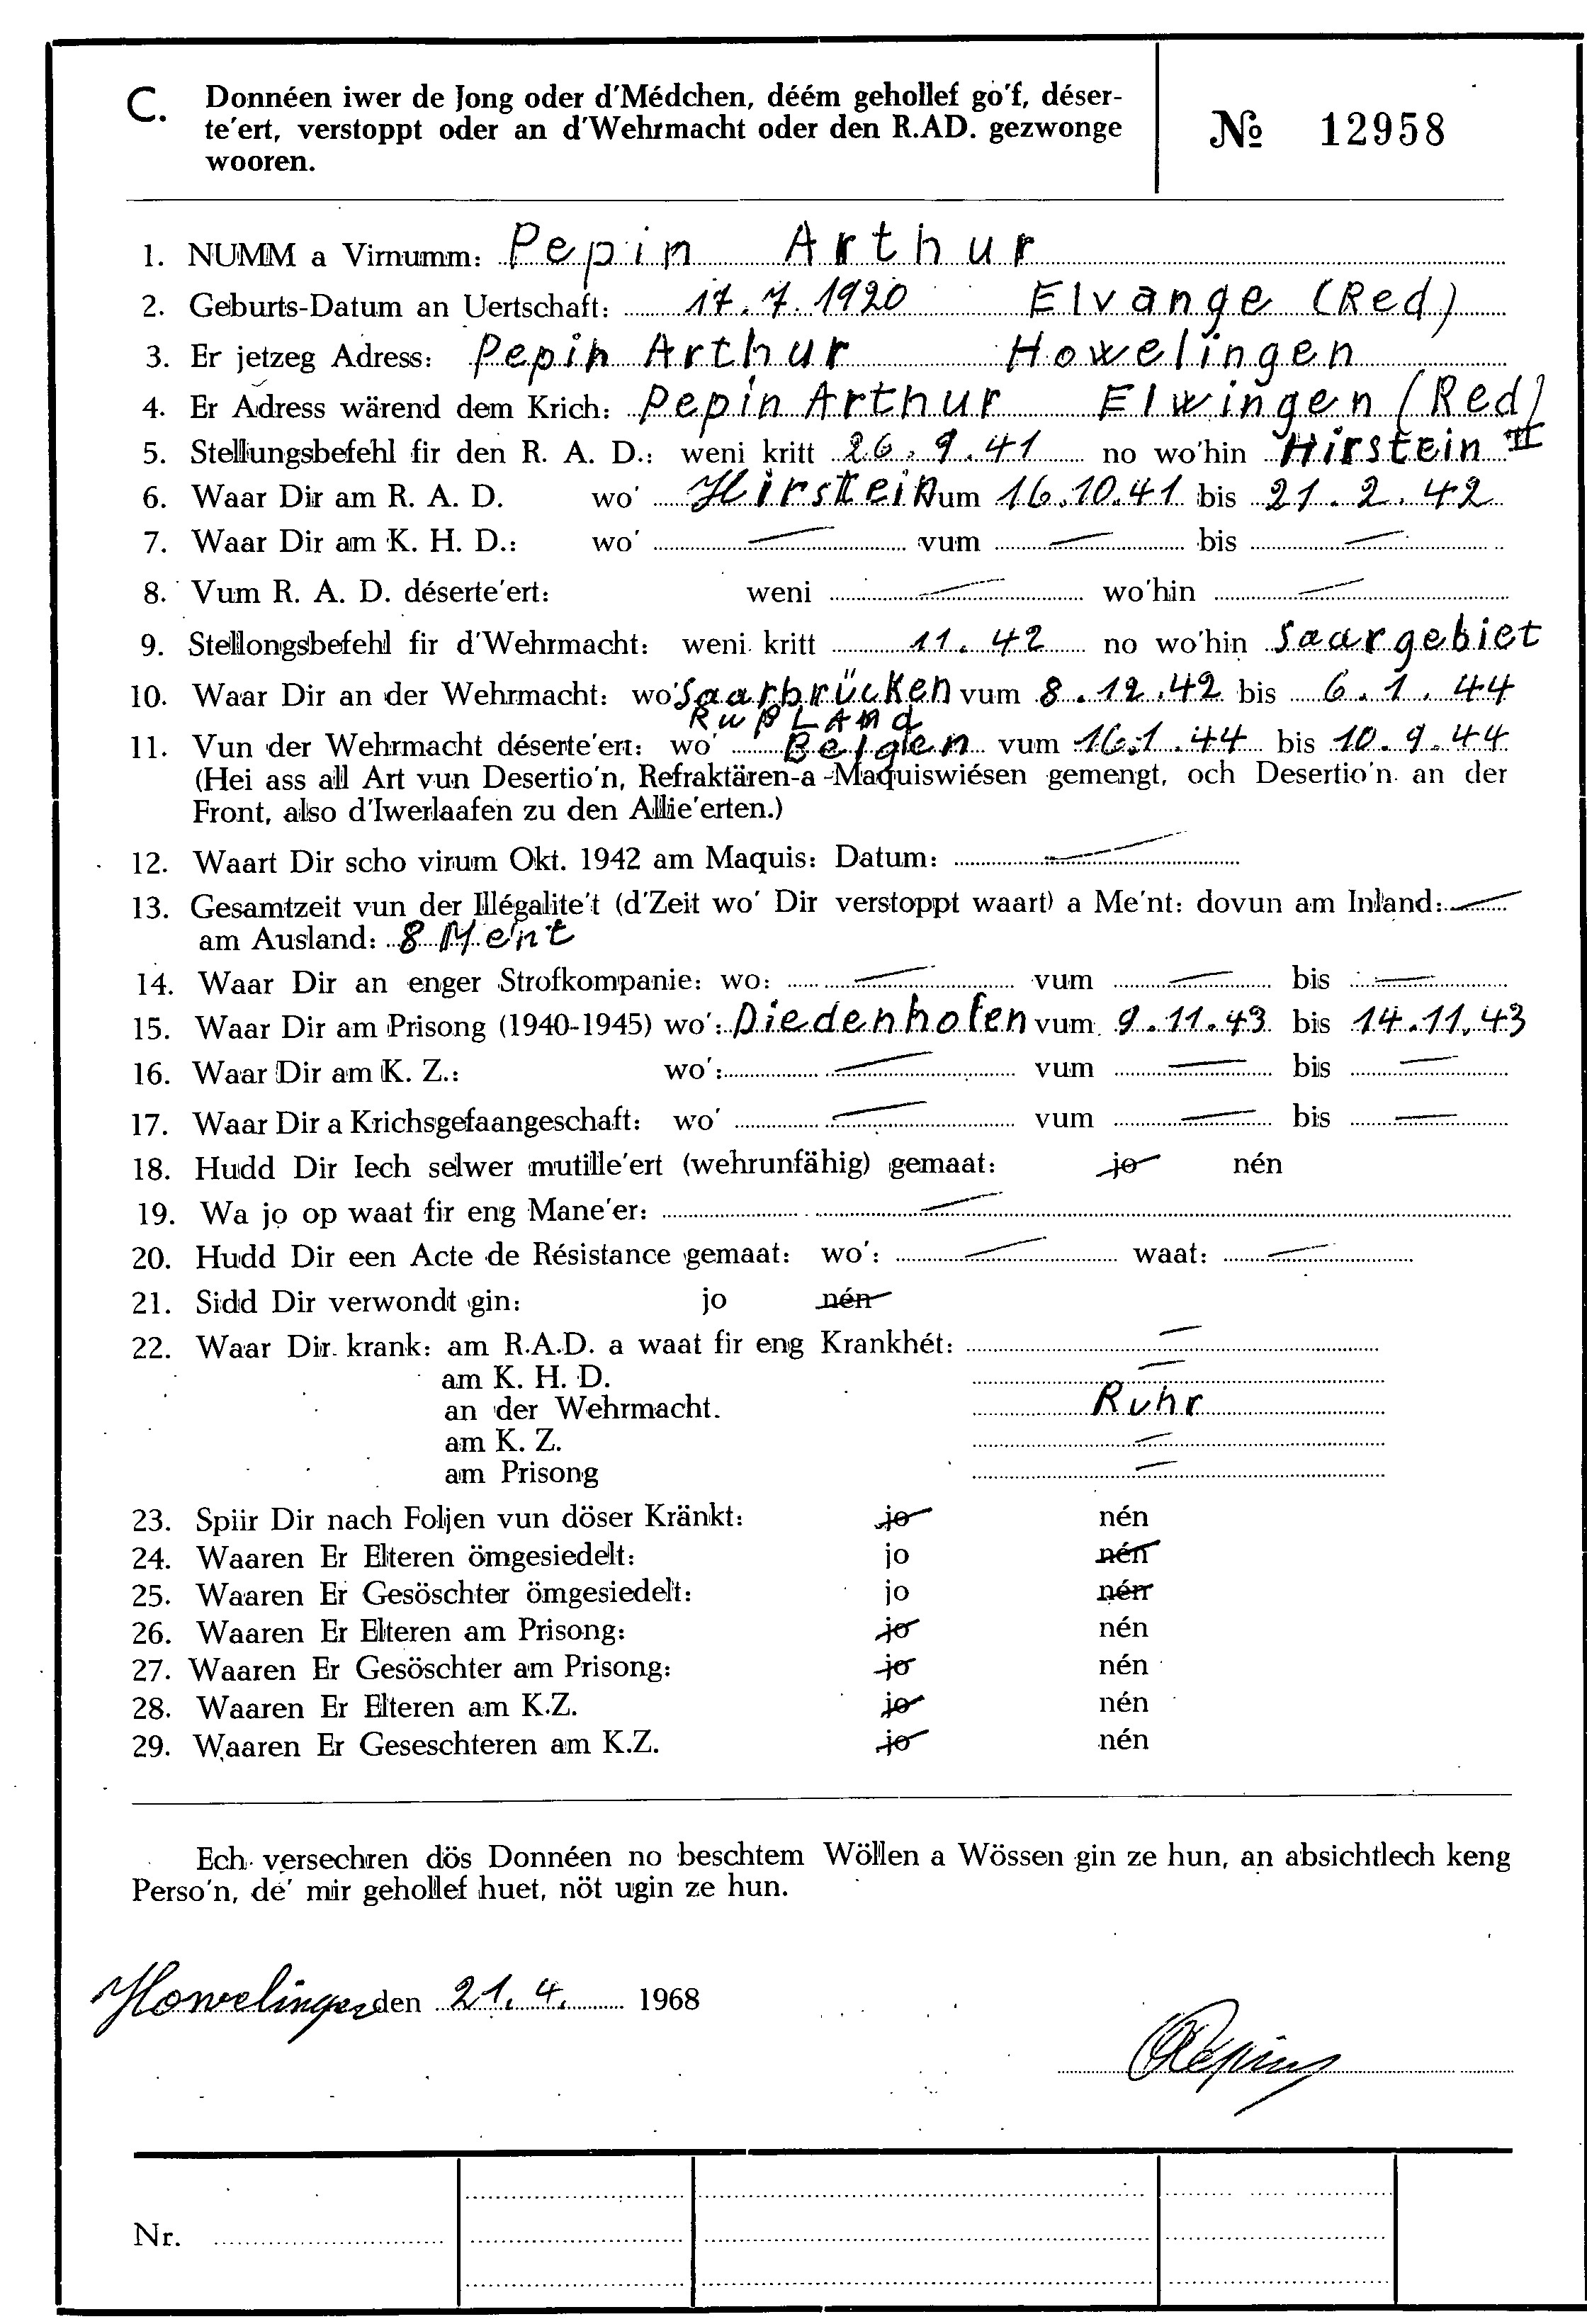 C. Donnéen iwer de Jong oder d'Médchen, déém gehollef go'f, déser-
te'ert, verstoppt oder an d'Wehrmacht oder den R.AD. gezwonge
wooren.
№ 12958
1. NUMM a Virnumm: Pepin Arthur
2. Geburts-Datum an Uertschaft: 17.7.1920 Elvange (Red)
3. Er jetzeg Adress: Pepin Arthur Howelingen
4. Er Adress wärend dem Krich: Pepin Arthur Elwingen (Red)
5. Stellungsbefehl fir den R. A. D.: weni kritt 26.9.41 no wo'hin Hirstein II
6. Waar Dir am R. A. D. wo' Hirstein vum 16.10.41 bis 21.2.42
7. Waar Dir am K. H. D.: wo' — vum — bis —
8. Vum R. A. D. déserte'ert: weni — wo'hin —
9. Stellongsbefehl fir d'Wehrmacht: weni kritt 11.42 no wo'hin Saargebiet
10. Waar Dir an der Wehrmacht: wo' Saarbrücken vum 8.12.42 bis 6.1.44
Rußland
11. Vun der Wehrmacht déserte'ert: wo' Belgien vum 16.1.44 bis 10.9.44
(Hei ass all Art vun Desertio'n, Refraktären-a-Maquiswiésen gemengt, och Desertio'n an der
Front, also d'Iwerlaafen zu den Allie'erten.)
12. Waart Dir scho virum Okt. 1942 am Maquis: Datum: —
13. Gesamtzeit vun der Illégalite't (d'Zeit wo' Dir verstoppt waart) a Me'nt: dovun am Inland: —
am Ausland: 8 Me'nt
14. Waar Dir an enger Strofkompanie: wo: — vum — bis —
15. Waar Dir am Prisong (1940-1945) wo': Diedenhofen vum 9.11.43 bis 14.11.43
16. Waar Dir am K. Z.: wo': — vum — bis —
17. Waar Dir a Krichsgefaangeschaft: wo' — vum — bis —
18. Hudd Dir Iech selwer mutille'ert (wehrunfähig) gemaat: jo nén
19. Wa jo op waat fir eng Mane'er: —
20. Hudd Dir een Acte de Résistance gemaat: wo': — waat: —
21. Sidd Dir verwondt gin: jo nén
22. Waar Dir krank: am R.A.D. a waat fir eng Krankhét: —
am K. H. D. —
an der Wehrmacht. Ruhr
am K. Z. —
am Prisong —
23. Spiir Dir nach Foljen vun döser Kränkt: jo nén
24. Waaren Er Elteren ömgesiedelt: jo nén
25. Waaren Er Gesöschter ömgesiedelt: jo nén
26. Waaren Er Elteren am Prisong: jo nén
27. Waaren Er Gesöschter am Prisong: jo nén
28. Waaren Er Elteren am K.Z. jo nén
29. Waaren Er Geseschteren am K.Z. jo nén
Ech versechren dös Donnéen no beschtem Wöllen a Wössen gin ze hun, an absichtlech keng
Perso'n, dé' mir gehollef huet, nöt ugin ze hun.
Howelingen den 21.4. 1968
Pepin
Nr.